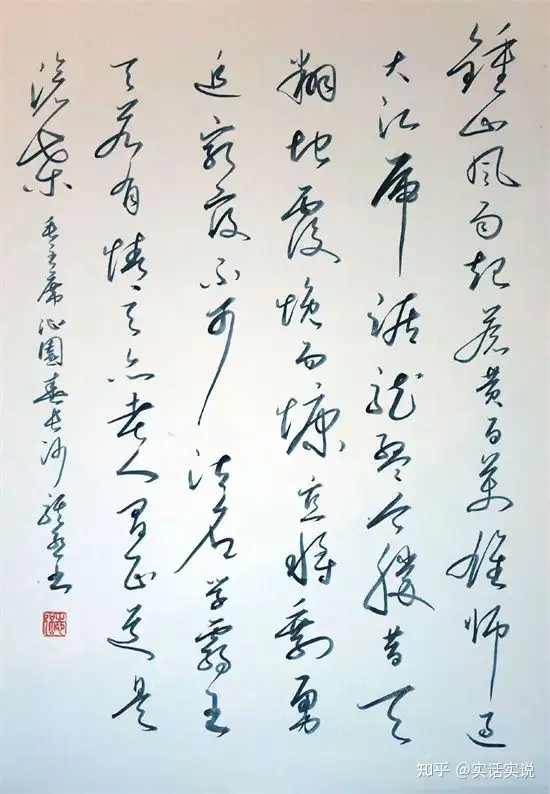 鍾山风雨起蒼黄百萬雄师过
大江虎踞龙盘今勝昔天
翻地覆慨而慷宜将剩勇
追窮寇不可沽名学霸王
天若有情天亦老人间正道是
滄桑 毛主席沁園春长沙 书
知乎 @实话实说